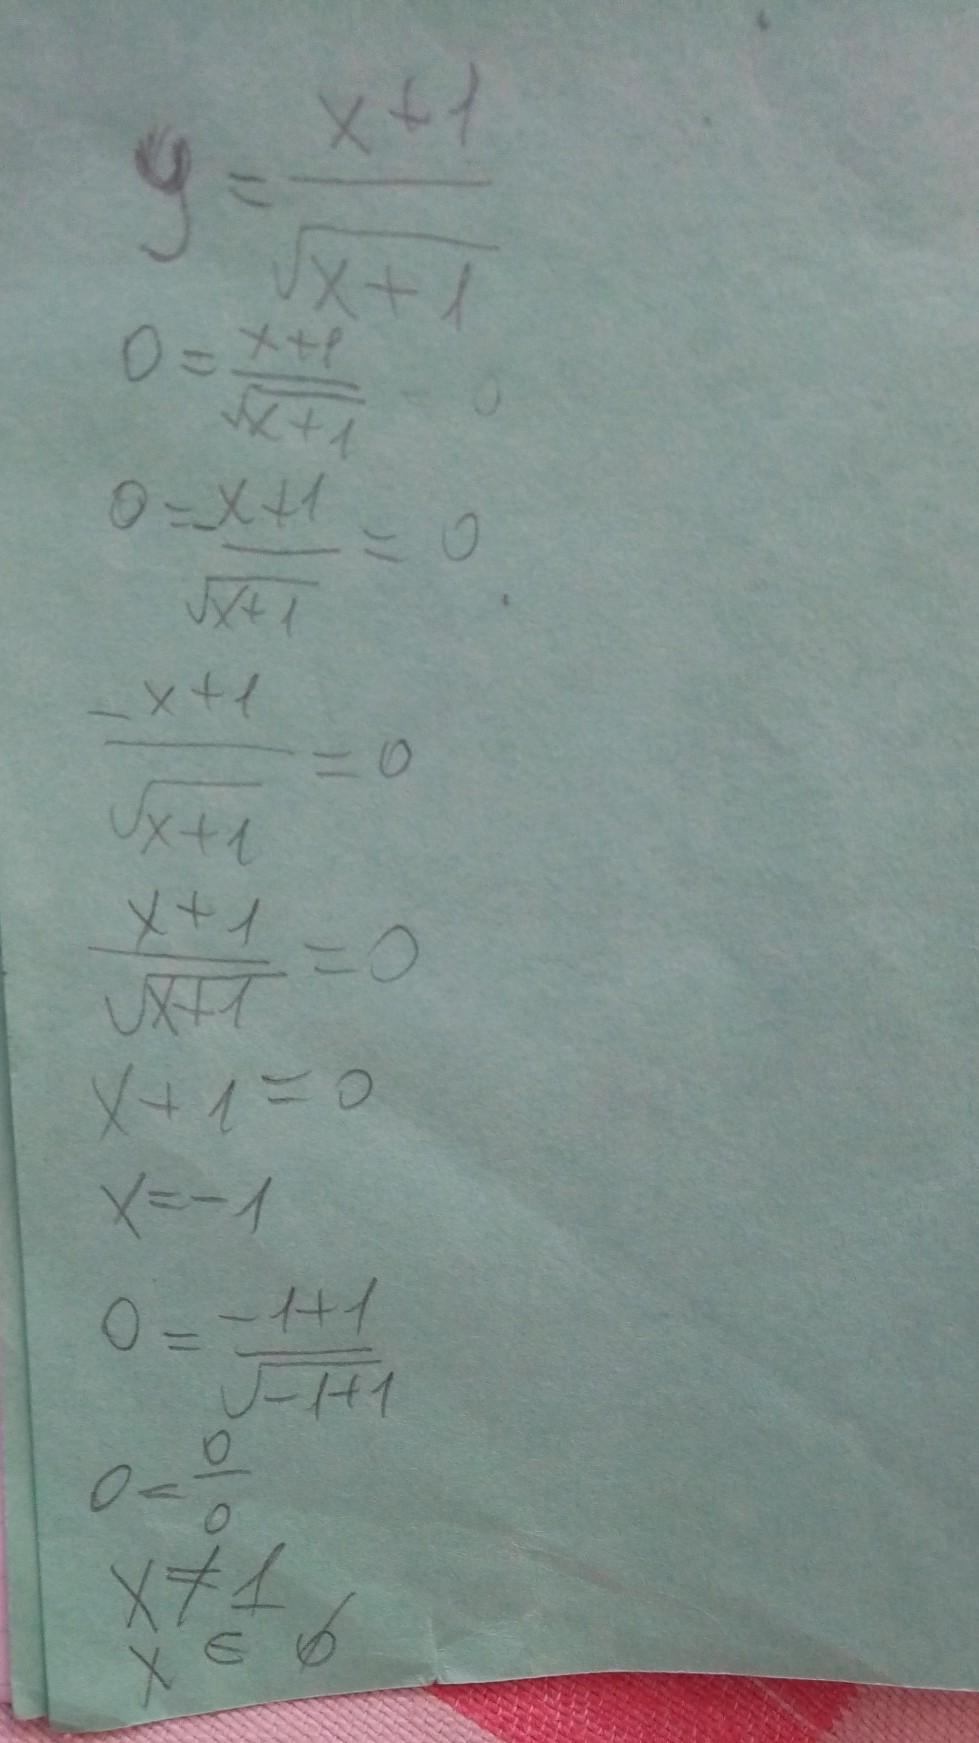 y = (x+1)/(√(x+1))
0 = (x+1)/(√(x+1)) - 0
0 = -(x+1)/(√(x+1)) = 0
-(x+1)/(√(x+1)) = 0
(x+1)/(√(x+1)) = 0
x+1=0
x=-1
0 = (-1+1)/(√(-1+1))
0 = 0/0
x≠1
x ∈ ∅